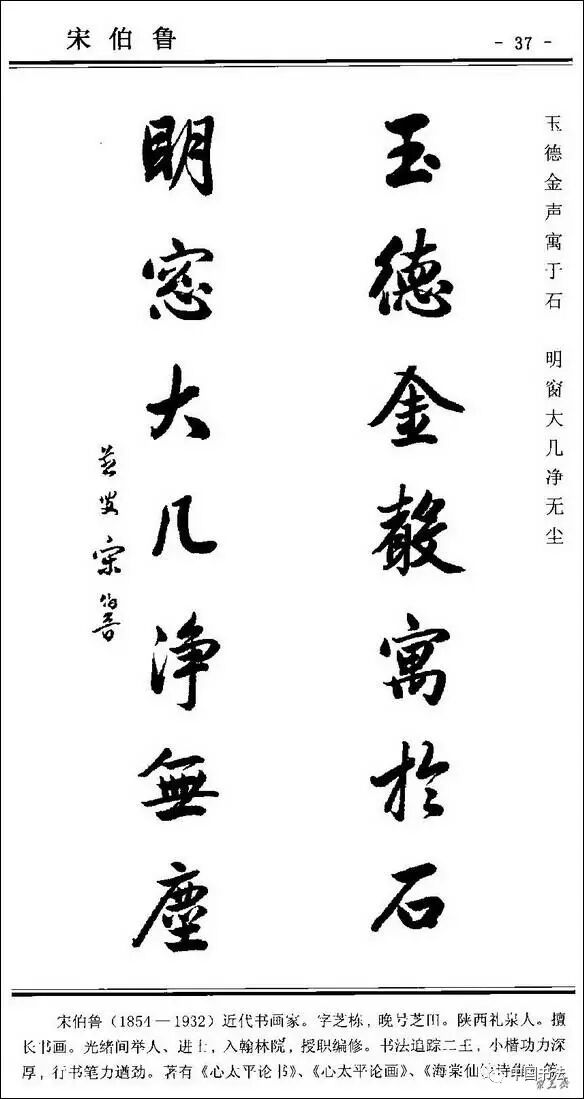 宋伯鲁
- 37 -
玉德金声寓于石 明窗大几净无尘
玉德金聲寓於石
明窓大几净無塵
芝叟宋伯魯
宋伯鲁（1854—1932）近代书画家。字芝栋，晚号芝田。陕西礼泉人。擅
长书画。光绪间举人、进士，入翰林院，授职编修。书法追踪二王，小楷功力深
厚，行书笔力遒劲。著有《心太平论书》、《心太平论画》、《海棠仙 诗 等
中国书法